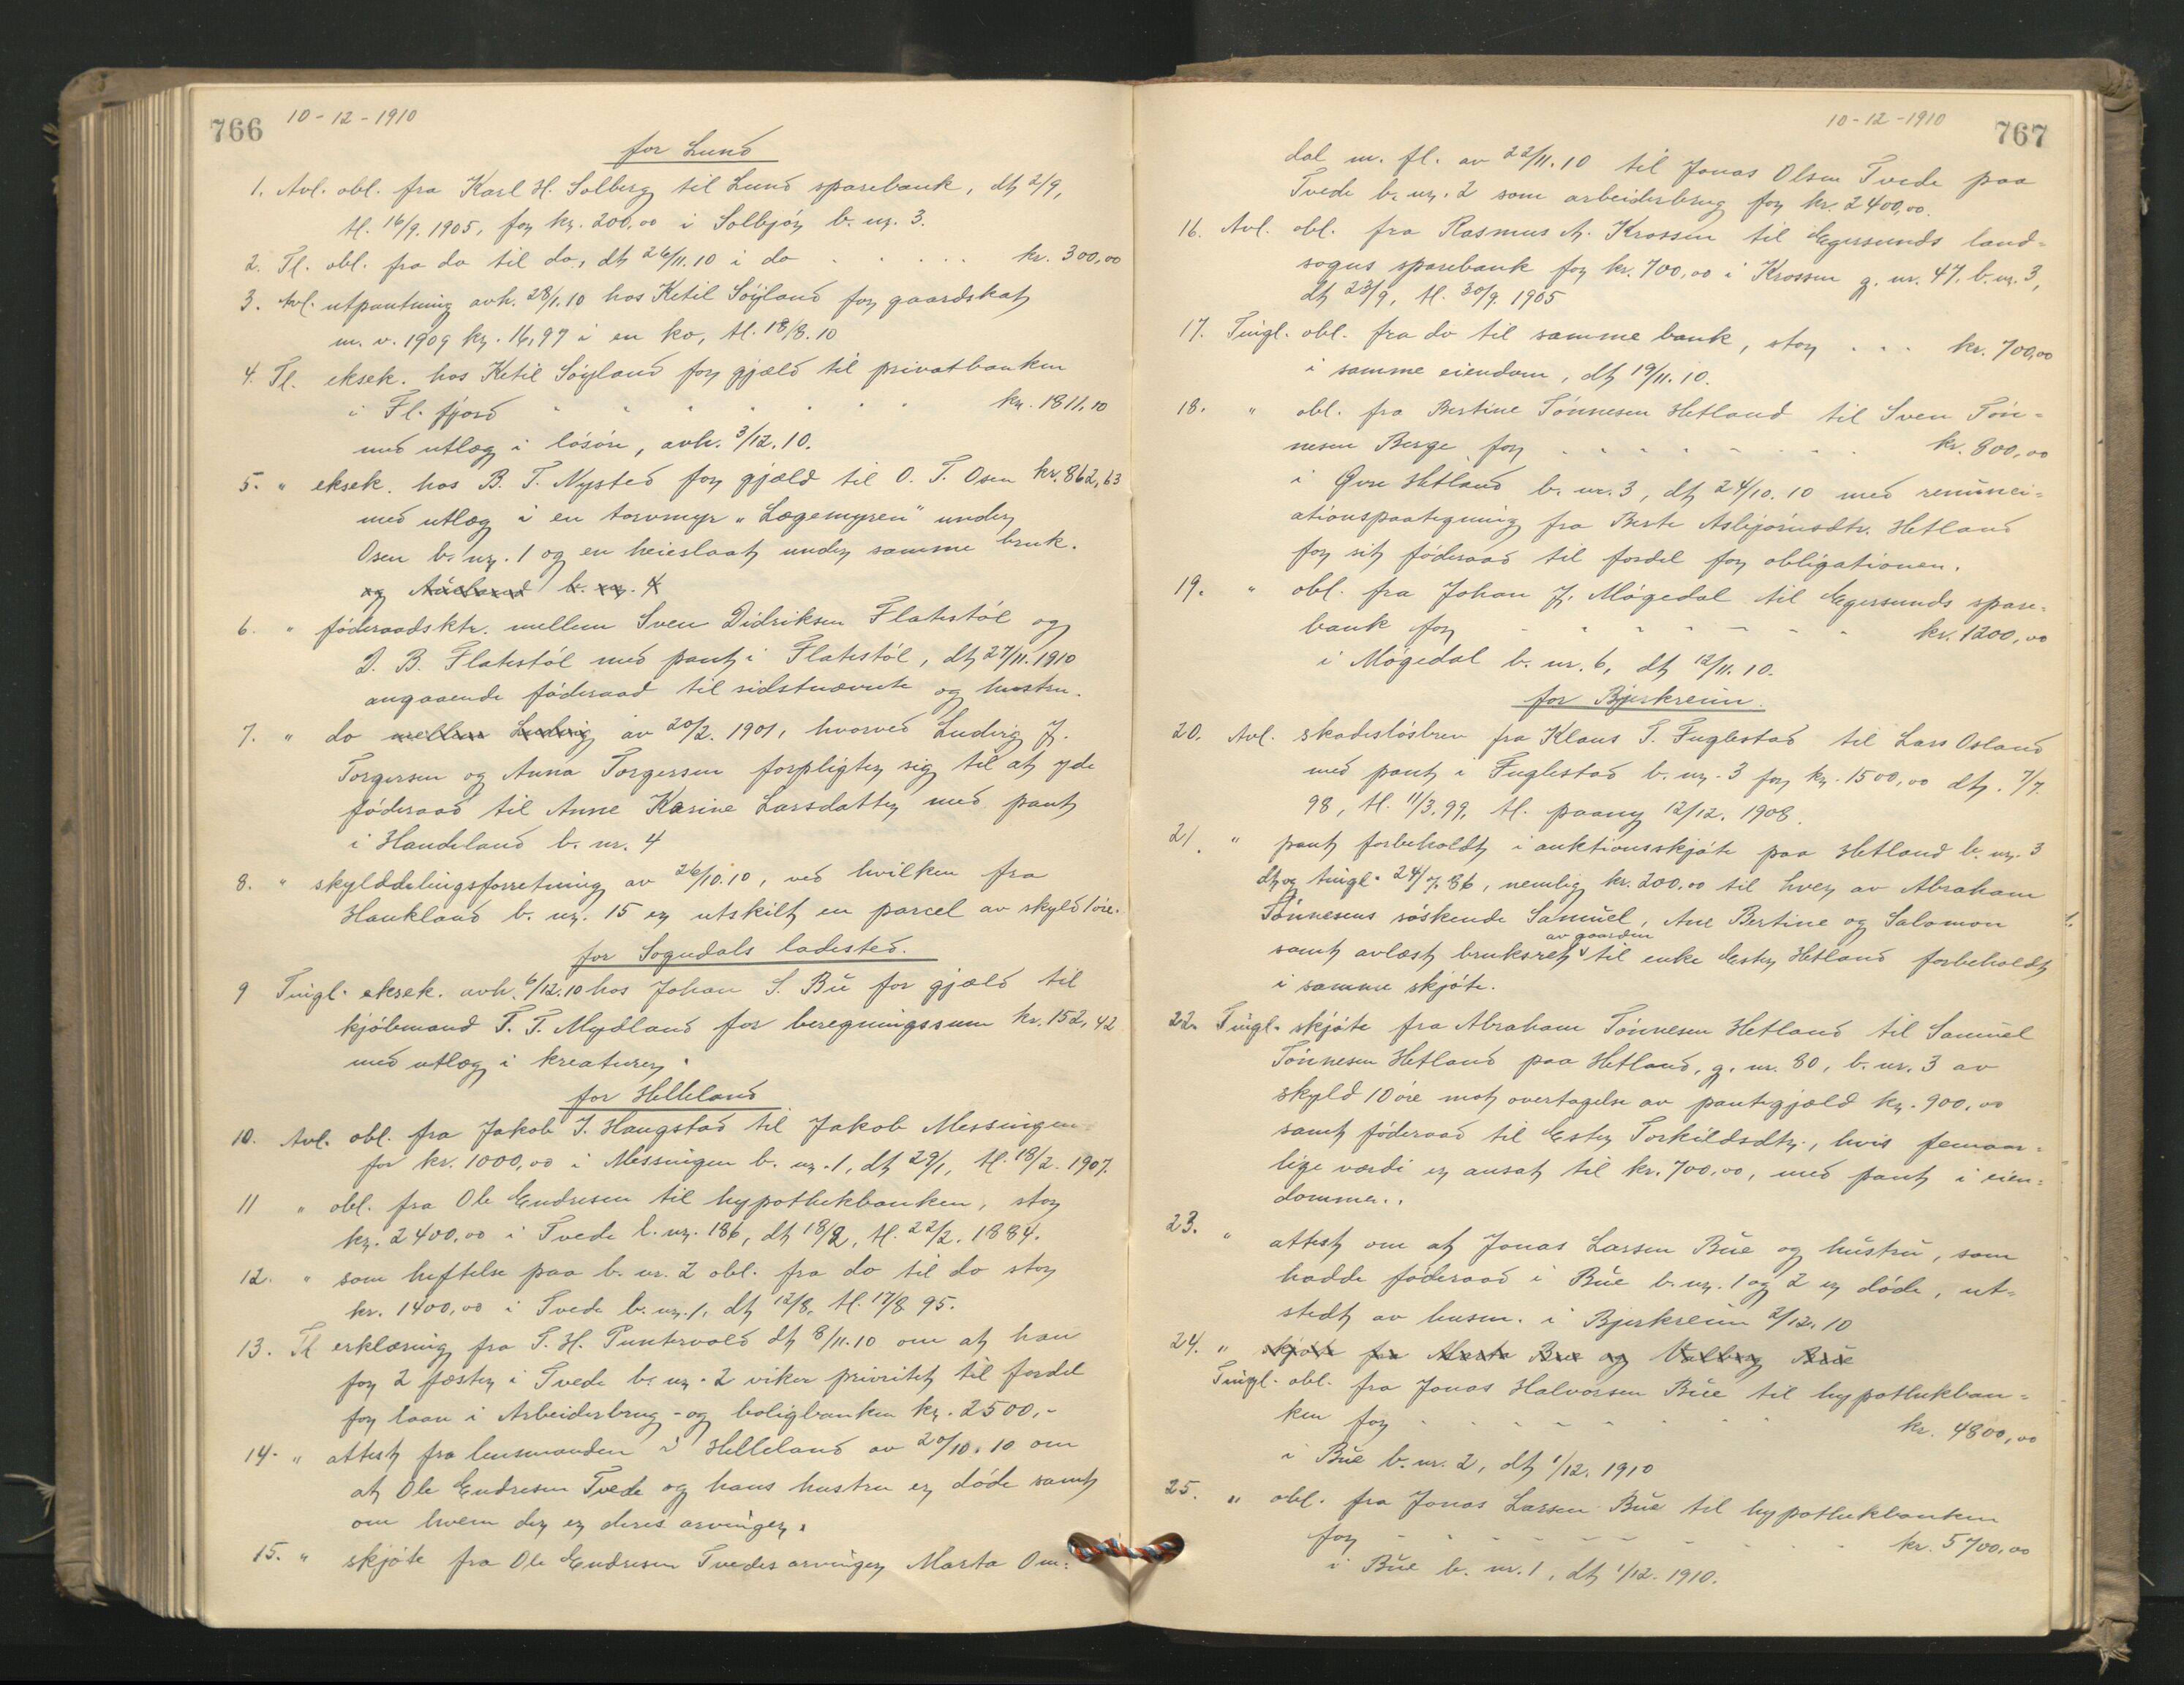 766 10-12-1910
for Lund
1. Avl. obl. fra Karl H. Solberg til Lund sparebank, dt 2/9,
tl. 16/9. 1905, for kr. 200,00 i Solbjör b. nr. 3.
2. Tl. obl. fra do til do, dt 26/11.10 i do . . . . . kr. 300,00
3. Avl. utpantning avh. 28/1.10 hos Ketil Söyland for gaardskat
m. v. 1909 kr. 16,97 i en ko, tl. 18/8.10
4. Tl. eksek. hos Ketil Söyland for gjæld til privatbanken
i Fl. fjord " " " " . . . kr. 1811,10
med utlæg i lösöre, avh. 3/12.10.
5. " eksek. hos B. T. Nysted for gjæld til O. T. Osen kr. 862,63
med utlæg i en torvmyr "Lægemyren" under
Osen b. nr. 1 og en heieslaat under samme bruk.
og Aarland b. nr. 4
6. " föderaadsktr. mellem Sven Didriksen Flatestöl og
D. B. Flatestöl med pant i Flatestöl, dt 27/11.1910
angaaende föderaad til sidstnævnte og hustru.
7. " do mellem Ludvig av 20/2. 1901, hvorved Ludvig J.
Torgersen og Anna Torgersen forpligter sig til at yde
föderaad til Anne Karine Larsdatter med pant
i Handeland b. nr. 4
8. " skylddelingsforretning av 26/10.10, ved hvilken fra
Haukland b. nr. 15 er utskilt en parcel av skyld 1 öre.
for Sogndals ladested.
9 Tingl. eksek. avh. 6/12.10 hos Johan S. Bü for gjæld til
kjöbmand T. T. Mydland for beregningssum kr. 152,42
med utlæg i kreaturer.
for Helleland
10. Avl. obl. fra Jakob J. Haugstad til Jakob Messingen
for kr. 1000,00 i Messingen b. nr. 1, dt 29/1, tl. 18/2. 1907.
11 " obl. fra Ole Endresen til hypothekbanken, stor
kr. 2400,00 i Tvede l. nr. 186, dt 18/2, tl. 22/2. 1884.
12. " som heftelse paa b. nr. 2 obl. fra do til do stor
kr. 1400,00 i Tvede b. nr. 1, dt 12/8, tl. 17/8 95.
13. Tl erklæring fra T. H. Puntervold dt 8/11.10 om at han
for 2 fæster i Tvede b. nr. 2 viker prioritet til fordel
for laan i Arbeiderbrug- og boligbanken kr. 2500,-
14. " attest fra lensmanden i Helleland av 20/10.10 om
at Ole Endresen Tvede og hans hustru er döde samt
om hvem der er deres arvinger.
15. " skjöte fra Ole Endresen Tvedes arvinger Marta Om=
10-12-1910 767
dal m. fl. av 22/11.10 til Jonas Olsen Tvede paa
Tvede b. nr. 2 som arbeiderbrug for kr. 2400,00.
16. Avl. obl. fra Rasmus A. Krossen til Egersunds land=
sogns sparebank for kr. 700,00 i Krossen g. nr. 47. b. nr. 3,
dt 23/9, tl. 30/9. 1905
17. Tingl. obl. fra do til samme bank, stor . . . kr. 700,00
i samme eiendom, dt 19/11.10.
18. " obl. fra Bertine Tönnesen Hetland til Sven Tön=
nesen Berge for . . . . . . . . kr. 800,00
i Övre Hetland b. nr. 3, dt 24/10.10 med renunci=
ationspaategning fra Berte Asbjörnsdtr. Hetland
for sit föderaad til fordel for obligationen.
19. " obl. fra Johan J. Mögedal til Egersunds spare=
bank for . . . . . . . . kr. 1200,00
i Mögedal b. nr. 6, dt 12/11.10.
for Bjerkreim.
20. Avl. skadeslösbrev fra Klaus T. Fuglestad til Lars Osland
med pant i Fuglestad b. nr. 3 for kr. 1500,00 dt. 7/7.
98, tl. 11/3.99, tl. paany 12/12. 1908.
21. " pant forbeholdt i auktionsskjöte paa Hetland b. nr. 3
dt og tingl. 24/7.86, nemlig kr. 200,00 til hver av Abraham
Tönnesens söskende Samuel, Ane Bertine og Salomon
av gaarden
samt avlæst bruksret til enke Ester Hetland forbeholdt
i samme skjöte.
22. Tingl. skjöte fra Abraham Tönnesen Hetland til Samüel
Tönnesen Hetland paa Hetland, g. nr. 80, b. nr. 3 av
skyld 10 öre mot overtagelse av pantegjæld kr. 900,00
samt föderaad til Ester Torkildsdtr., hvis femaar=
lige værdi er ansat til kr. 700,00, med pant i eien=
dommen.
23. " attest om at Jonas Larsen Büe og hüstrü, som
hadde föderaad i Büe b. nr. 1 og 2 er döde, ut=
stedt av lensm. i Bjerkreim 2/12.10
24. " skjöte fra Marta Bue og Valborg Büe
Tingl. obl. fra Jonas Halvorsen Büe til hypothekban=
ken for . . . . . . . . kr. 4800,00
i Büe b. nr. 2, dt 1/12. 1910
25. " obl. fra Jonas Larsen Büe til hypothekbanken
for . . . . . . . . kr. 5700,00
i Büe b. nr. 1, dt 1/12. 1910.